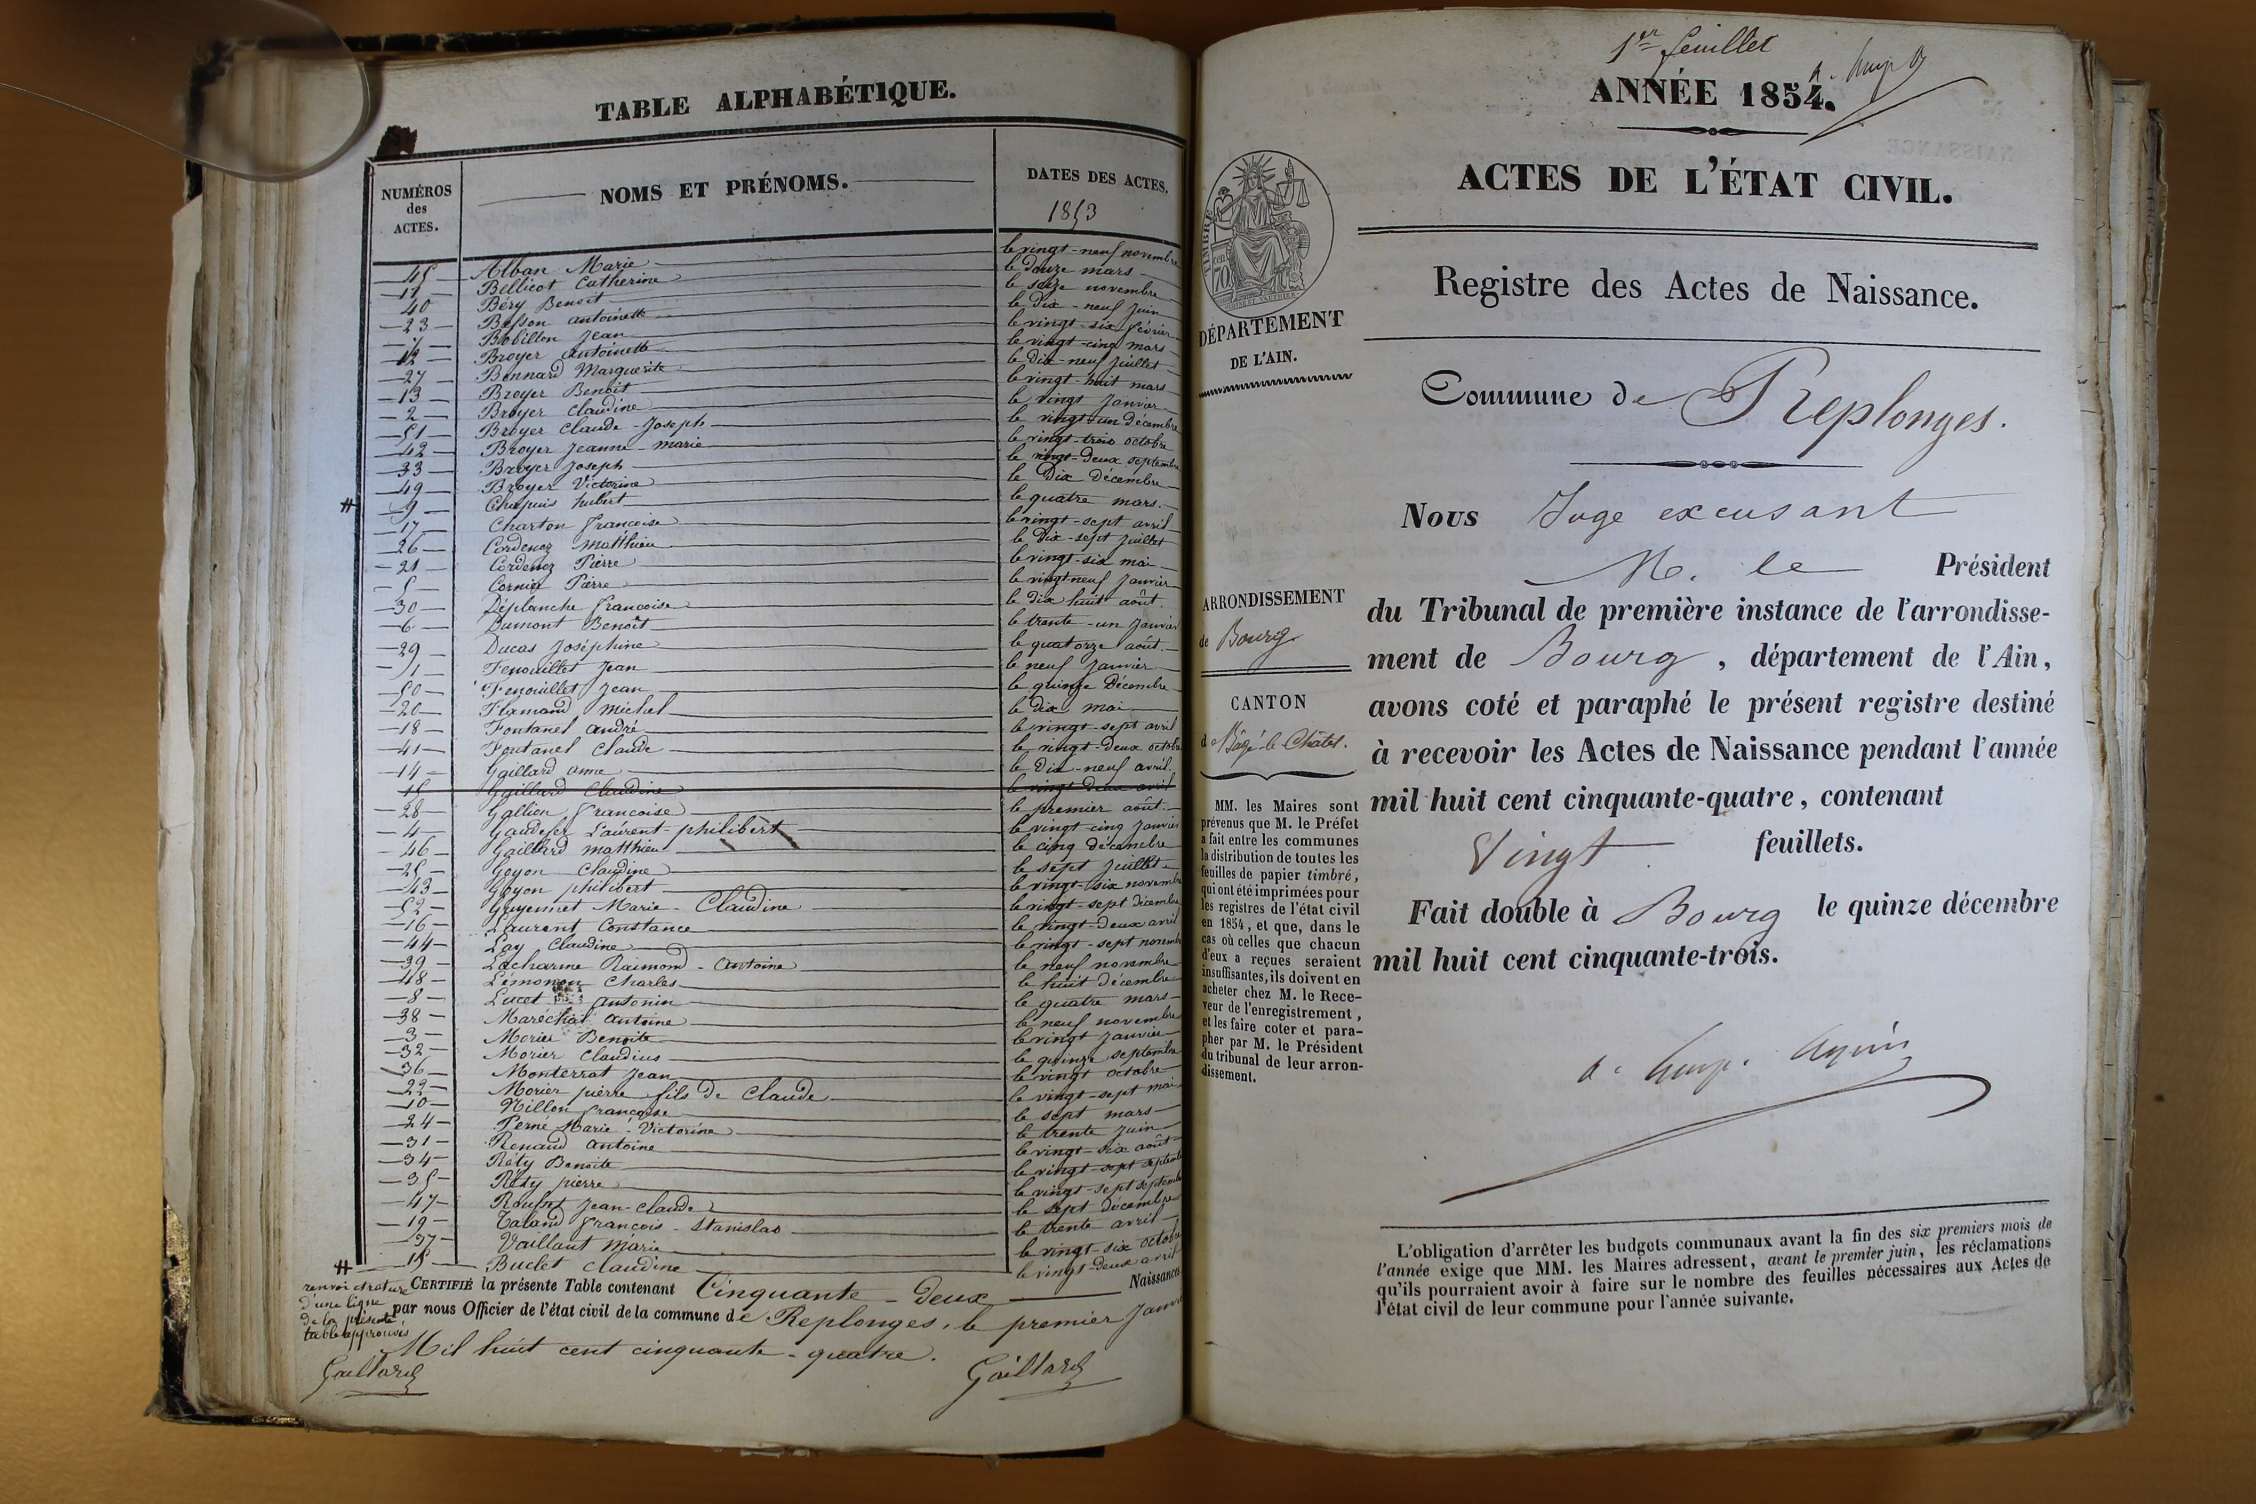 TABLE ALPHABÉTIQUE.
NUMÉROS des ACTES. NOMS ET PRÉNOMS. DATES DES ACTES.
1853
45 Alban Marie le vingt-neuf novembre
11 Bellicot Catherine le douze mars
40 Béry Benoit le seize novembre
23 Besson antoinette le dix-neuf juin
7 Bobillon Jean le vingt-six février
12 Broyer antoinette le vingt-cinq mars
27 Bonnard Marguerite le dix-neuf juillet
13 Broyer Benoit le vingt-huit mars
2 Broyer claudine le vingt janvier
51 Broyer Claude-Joseph le vingt-un Décembre
42 Broyer Jeanne-marie le vingt-trois octobre
33 Broyer Joseph le vingt-deux septembre
49 Broyer Victorine le Dix Décembre
# 9 Chapuis hubert le quatre mars.
17 Charton françoise le vingt-sept avril
26 Cordenez Matthieu le dix-sept juillet
21 Cordenez Pierre le vingt-six mai
5 Cornier Pierre le vingt neuf janvier
30 Déplanche françoise le dix huit août.
6 Dumont Benoît le trente-un janvier
29 Ducas Joséphine le quatorze août.
1 Fenouillet Jean le neuf janvier
50 Fenouillet Jean le quinze Décembre
20 Flamand michel le dix mai
18 Fontanel andré le vingt-sept avril
41 Fontanel Claude le vingt-deux octobre
14 Gaillard anne le dix-neuf avril.
15 Gaillard Claudine le vingt deux avril
28 Gallien françoise le premier août.
4 Gaudefer Laurent-philibert le vingt-cinq janvier
46 Gaillard matthieu le cinq décembre
25 Goyon Claudine le sept juillet
43 Goyon philibert le vingt-six novembre
52 Guyennet Marie-Claudine le vingt-sept décembre
16 Laurent Constance le vingt-deux avril
44 Lay Claudine le vingt-sept novembre
39 Lacharme Raimond-Antoine le neuf novembre
48 Lémonon Charles le huit décembre
8 Lucet antonin le quatre mars
38 Maréchal antoine le neuf novembre
3 Morier Benoite le vingt janvier
32 Morier Claudius le quinze septembre
36 Monterrat Jean le vingt octobre
22 Morier pierre fils de Claude le vingt-sept mai
10 Nillon françoise le sept mars
24 Perné Marie-Victorine le trente juin
31 Renaud antoine le vingt-six août
34 Réty Benoite le vingt-sept septembre
35 Réty pierre le vingt-sept septembre
47 Roufset Jean-claude le sept décembre
19 Taland françois-stanislas le trente avril
37 Vaillant marie le vingt-six octobre
# 15 Buclet claudine le vingt-deux avril
renvoi et rature
d'une ligne
de la présente
table approuvés
CERTIFIÉ la présente Table contenant Cinquante-deux Naissances
par nous Officier de l'état civil de la commune de Replonges, le premier Janvier
Mil huit cent cinquante-quatre.
Gaillard Gaillard
1er feuillet
ANNÉE 1854.
ACTES DE L'ÉTAT CIVIL.
Registre des Actes de Naissance.
TIMBRE
70
DÉPARTEMENT
DE L'AIN.
Commune de Replonges.
ARRONDISSEMENT
de Bourg
CANTON
de Bâgé-le-Châtel.
MM. les Maires sont
prévenus que M. le Préfet
a fait entre les communes
la distribution de toutes les
feuilles de papier timbré,
qui ont été imprimées pour
les registres de l'état civil
en 1854, et que, dans le
cas où celles que chacun
d'eux a reçues seraient
insuffisantes, ils doivent en
acheter chez M. le Rece-
veur de l'enregistrement,
et les faire coter et para-
pher par M. le Président
du tribunal de leur arron-
dissement.
Nous Juge excusant
M. le Président
du Tribunal de première instance de l'arrondisse-
ment de Bourg, département de l'Ain,
avons coté et paraphé le présent registre destiné
à recevoir les Actes de Naissance pendant l'année
mil huit cent cinquante-quatre, contenant
Vingt feuillets.
Fait double à Bourg le quinze décembre
mil huit cent cinquante-trois.
L'obligation d'arrêter les budgets communaux avant la fin des six premiers mois de
l'année exige que MM. les Maires adressent, avant le premier juin, les réclamations
qu'ils pourraient avoir à faire sur le nombre des feuilles nécessaires aux Actes de
l'état civil de leur commune pour l'année suivante.